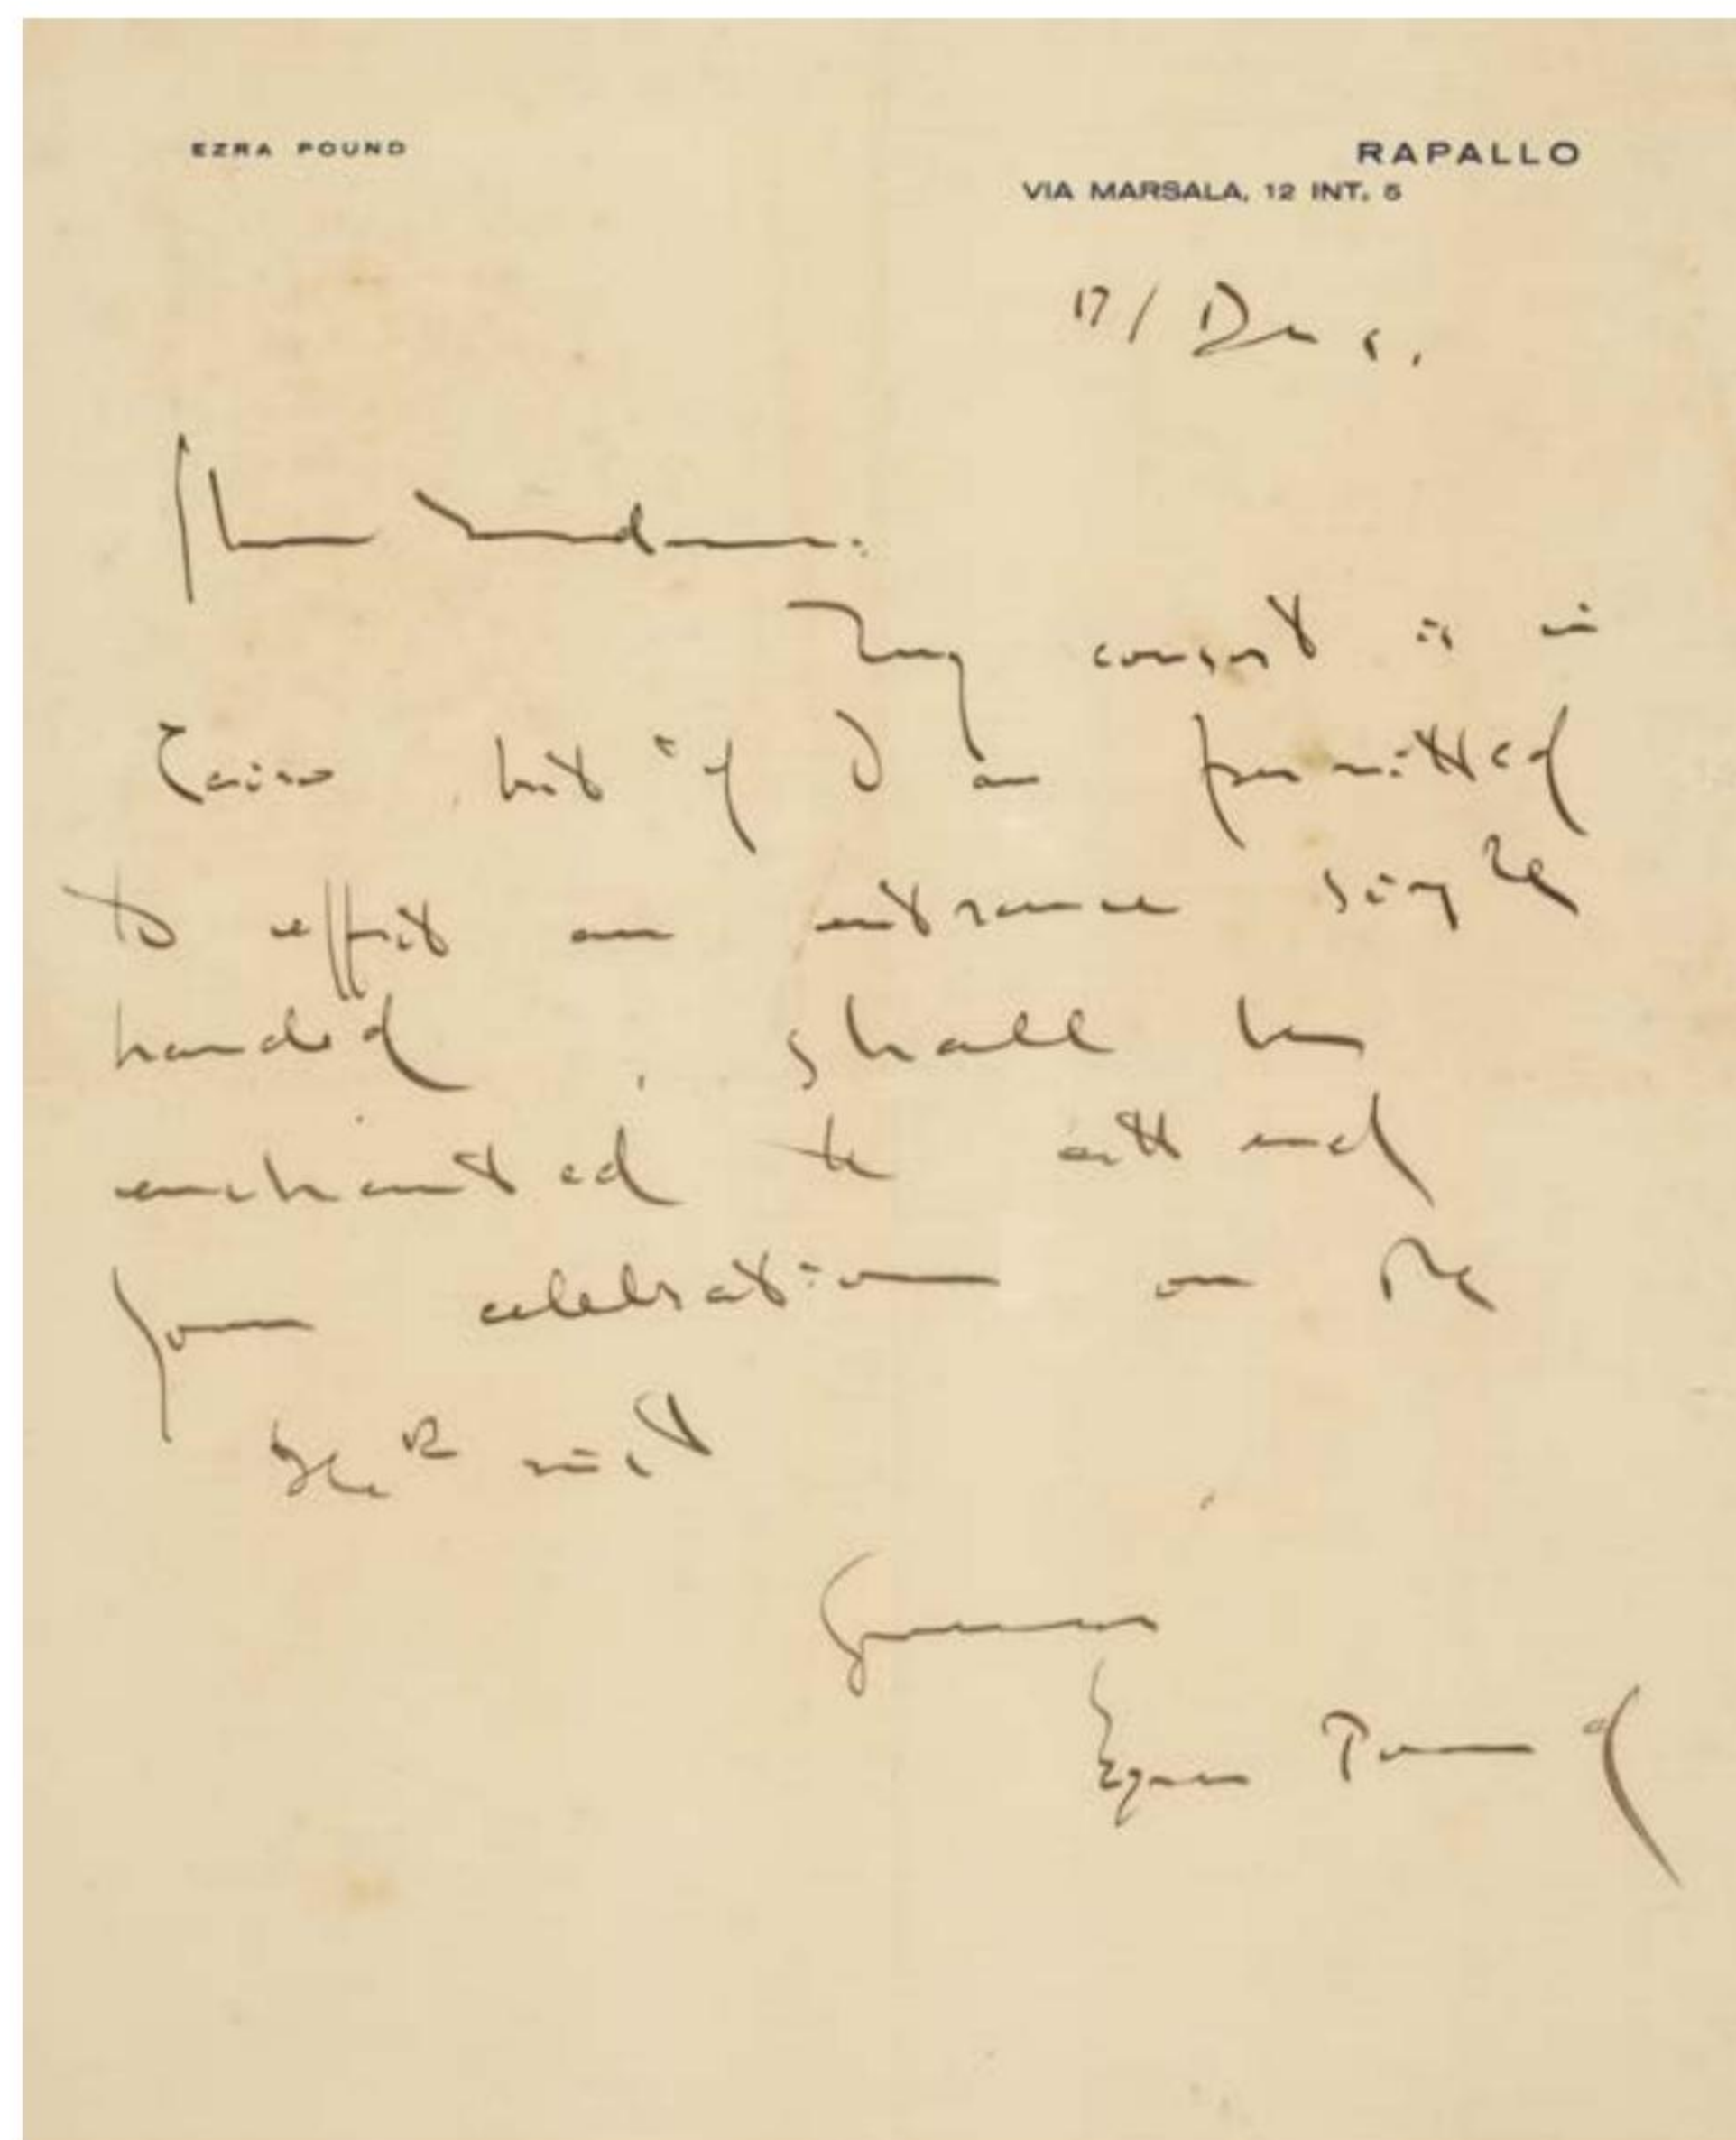 EZRA POUND
RAPALLO
VIA MARSALA, 12 INT. 5
17/ Dec.
My consort is in
Cairo, but if I am permitted
to effect an entrance single
handed, shall be
enchanted to attend
your celebration on the
inst
Ezra Pound